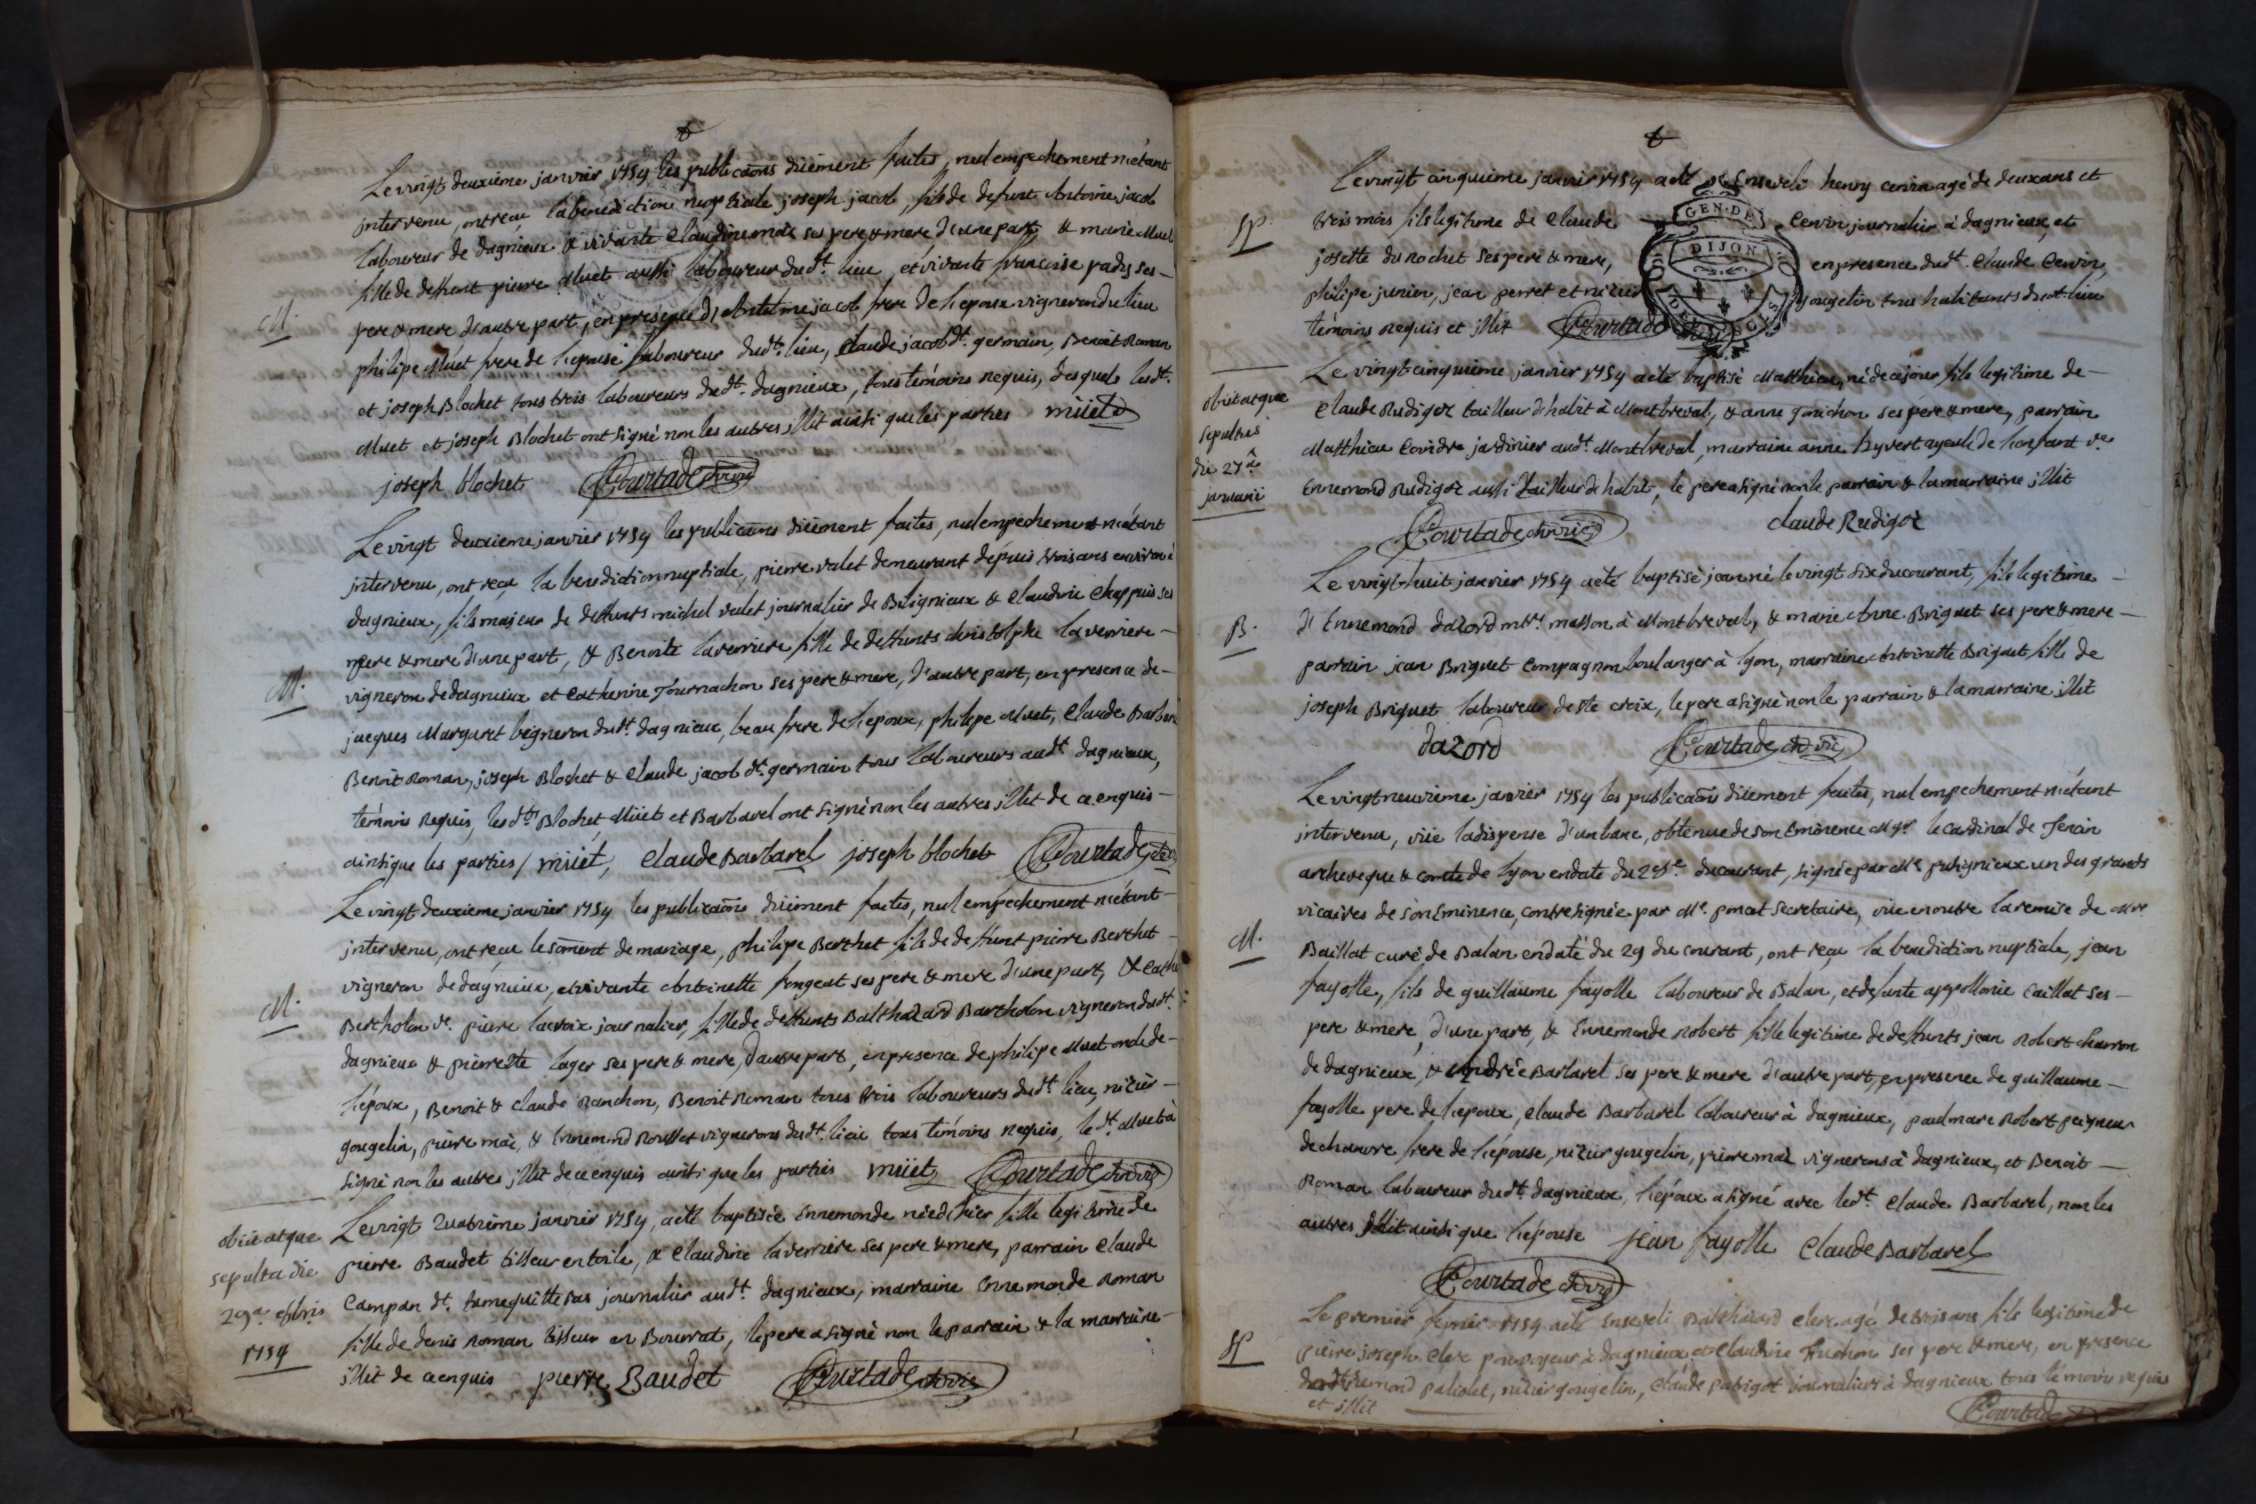 Le vingt deuxième janvier 1754 les publicaons düement faites, nul empechement n'etant
intervenu, ont reçu la benediction nuptiale joseph jacob, fils de defunt Antoine jacob
laboureur de dagnieux & vivante Claudine mas ses pere & mere d'une part & marie Muet
fille de deffunt pierre Muet aussi laboureur dudt. lieu, et vivante françoise padey ses
pere & mere d'autre part, en presence d'Antelme jacob frere de l'epoux vigneron du lieu
M.
philipe Muet frere de l'epouse laboureur dudt. lieu, Claude jacob dt. germain, Benoit Roman
et joseph Blochet tous trois laboureurs dudt. dagnieux, tous témoins requis, desquels lesdt.
Muet et joseph Blochet ont signé non les autres illit ainsi que les parties müet
joseph blochet Courtade
Le vingt deuxieme janvier 1754 les publicaons düement faites, nul empechement n'etant
intervenu, ont reçu la benediction nuptiale, pierre valet demeurant depuis trois ans environ à
dagnieux, fils majeur de deffunts michel valet journalier de Beligneux & Claudine Chappuis ses
pere & mere d'une part, & Benoite Laverriere fille de deffunts christolphe Laverriere
M.
vigneron de dagnieux et Catherine Tournachon ses pere & mere, d'autre part, en presence de
jacques Margaret vigneron dudt. dagnieux, beau frere de l'epoux, philipe Muet, Claude Barbarel
Benoit Roman, joseph Blochet & Claude jacob dt. germain tous laboureurs audt. dagnieux,
témoins requis, lesdts Blochet Müet et Barbarel ont signé non les autres illit de ce enquis
ainsi que les parties / müét, Claude Barbarel joseph blochet Courtade
Le vingt deuxieme janvier 1754 les publicaons düement faites, nul empechement n'etant
intervenu, ont reçu le sament de mariage, philipe Berthet fils de deffunt pierre Berthet
vigneron de dagnieux, et vivante Antoinette fongeat ses pere & mere d'une part, &
M.
Bertholon ve. pierre lacroix journalier, fille de deffunts Balthazard Bartholon vigneron dudt.
dagnieux & pierrette Lager ses pere & mere, d'autre part, en presence de philipe Muet oncle de
l'epoux, Benoit & Claude Ranchon, Benoit Roman tous trois laboureurs dudt. lieu, nizier
gougelin, pierre mas, & Ennemond Rousset vignerons dudt. lieu tous témoins requis, le dt. Muet a
signé non les autres illit de ce enquis ainsi que les parties müet Courtade
Le vingt quatrieme janvier 1754, a été baptisée Ennemonde née d'hier fille legitime de
obiit atque
sepulta die
29a 8bris
1754
pierre Baudet tisseur en toile, & Claudine laverriere ses pere & mere, parrain Claude
Campan dt. journalier audt. dagnieux, marraine Ennemonde Roman
fille de denis Roman tisseur en Bourrat, le pere a signé non le parrain & la marraine
illit de ce enquis pierre Baudet Courtade
Le vingt cinquieme janvier 1754 a été enseveli henry cervin agé de deux ans et
Sp.
trois mois fils legitime de Claude Cervin journalier à dagnieux, et
josette du Rochet ses pere & mere, en presence dudt. Claude Cervin,
philipe junien, jean perret et nizier gougelin tous habitants dudt. lieu
témoins requis et illit Courtade
GEN. DE
DIJON
Le vingt cinquieme janvier 1754 a été baptisé Matthieu, né de ce jour fils legitime de
obiit atque
sepultus
die 27a
januarii
Claude Rudigoz tailleur d'habit à Montbreval, & anne gonichon ses pere & mere, parrain
Matthieu Coindre jardinier audt. Montbreval, marraine anne hyvert ayeule de l'enfant ve
Ennemond Rudigoz aussi tailleur de habit, le pere a signé non le parrain & la marraine illit
Courtade Claude Rudigoz
Le vingt-huit janvier 1754 a été baptisé jean né le vingt six du courant, fils legitime
B.
d'Ennemond dazord mtre. masson à Montbreval, & marie Anne Briguet ses pere & mere
parrain jean Briguet Compagnon boulanger à lyon, marraine Antoinette Briguet fille de
joseph Briguet laboureur de Ste croix, le pere a signé non le parrain & la marraine illit
dazord Courtade
Le vingt neuvieme janvier 1754 les publicaons düement faites, nul empechement n'etant
intervenu, vüe la dispense d'un banc, obtenue de son Eminence Mgr. le Cardinal de Tencin
archeveque & comte de lyon en date du du courant, signée par Mr. putignieux un des grands
vicaires de son Eminence, contresignée par Me. secretaire, vüe en outre la remise de Mre
M.
Baillat curé de Balan en date du 29 du courant, ont reçu la benediction nuptiale, jean
fayolle, fils de guillaume fayolle laboureur de Balan, et defunte appollonie Caillat ses
pere & mere, d'une part, & Ennemonde Robert fille legitime de deffunts jean Robert charron
de dagnieux, & Andrée Barbarel ses pere & mere d'autre part, en presence de guillaume
fayolle pere de l'epoux, Claude Barbarel laboureur à dagnieux, paul marc Robert peigneur
de chanvre frere de l'epouse, nizier gougelin, pierre mas vignerons à dagnieux, et Benoit
Roman laboureur dudt. dagnieux, l'epoux a signé avec ledt. Claude Barbarel, non les
autres illit ainsi que l'epouse jean fayolle Claude Barbarel
Courtade
Le premier fevrier 1754 a été enseveli Balthazard Clerc agé de trois ans fils legitime de
Sp
pierre joseph Clerc à dagnieux et Claudine ses pere & mere, en presence
paliolet, nizier gougelin, Claude patigot journaliers à dagnieux tous témoins requis
et illit Courtade